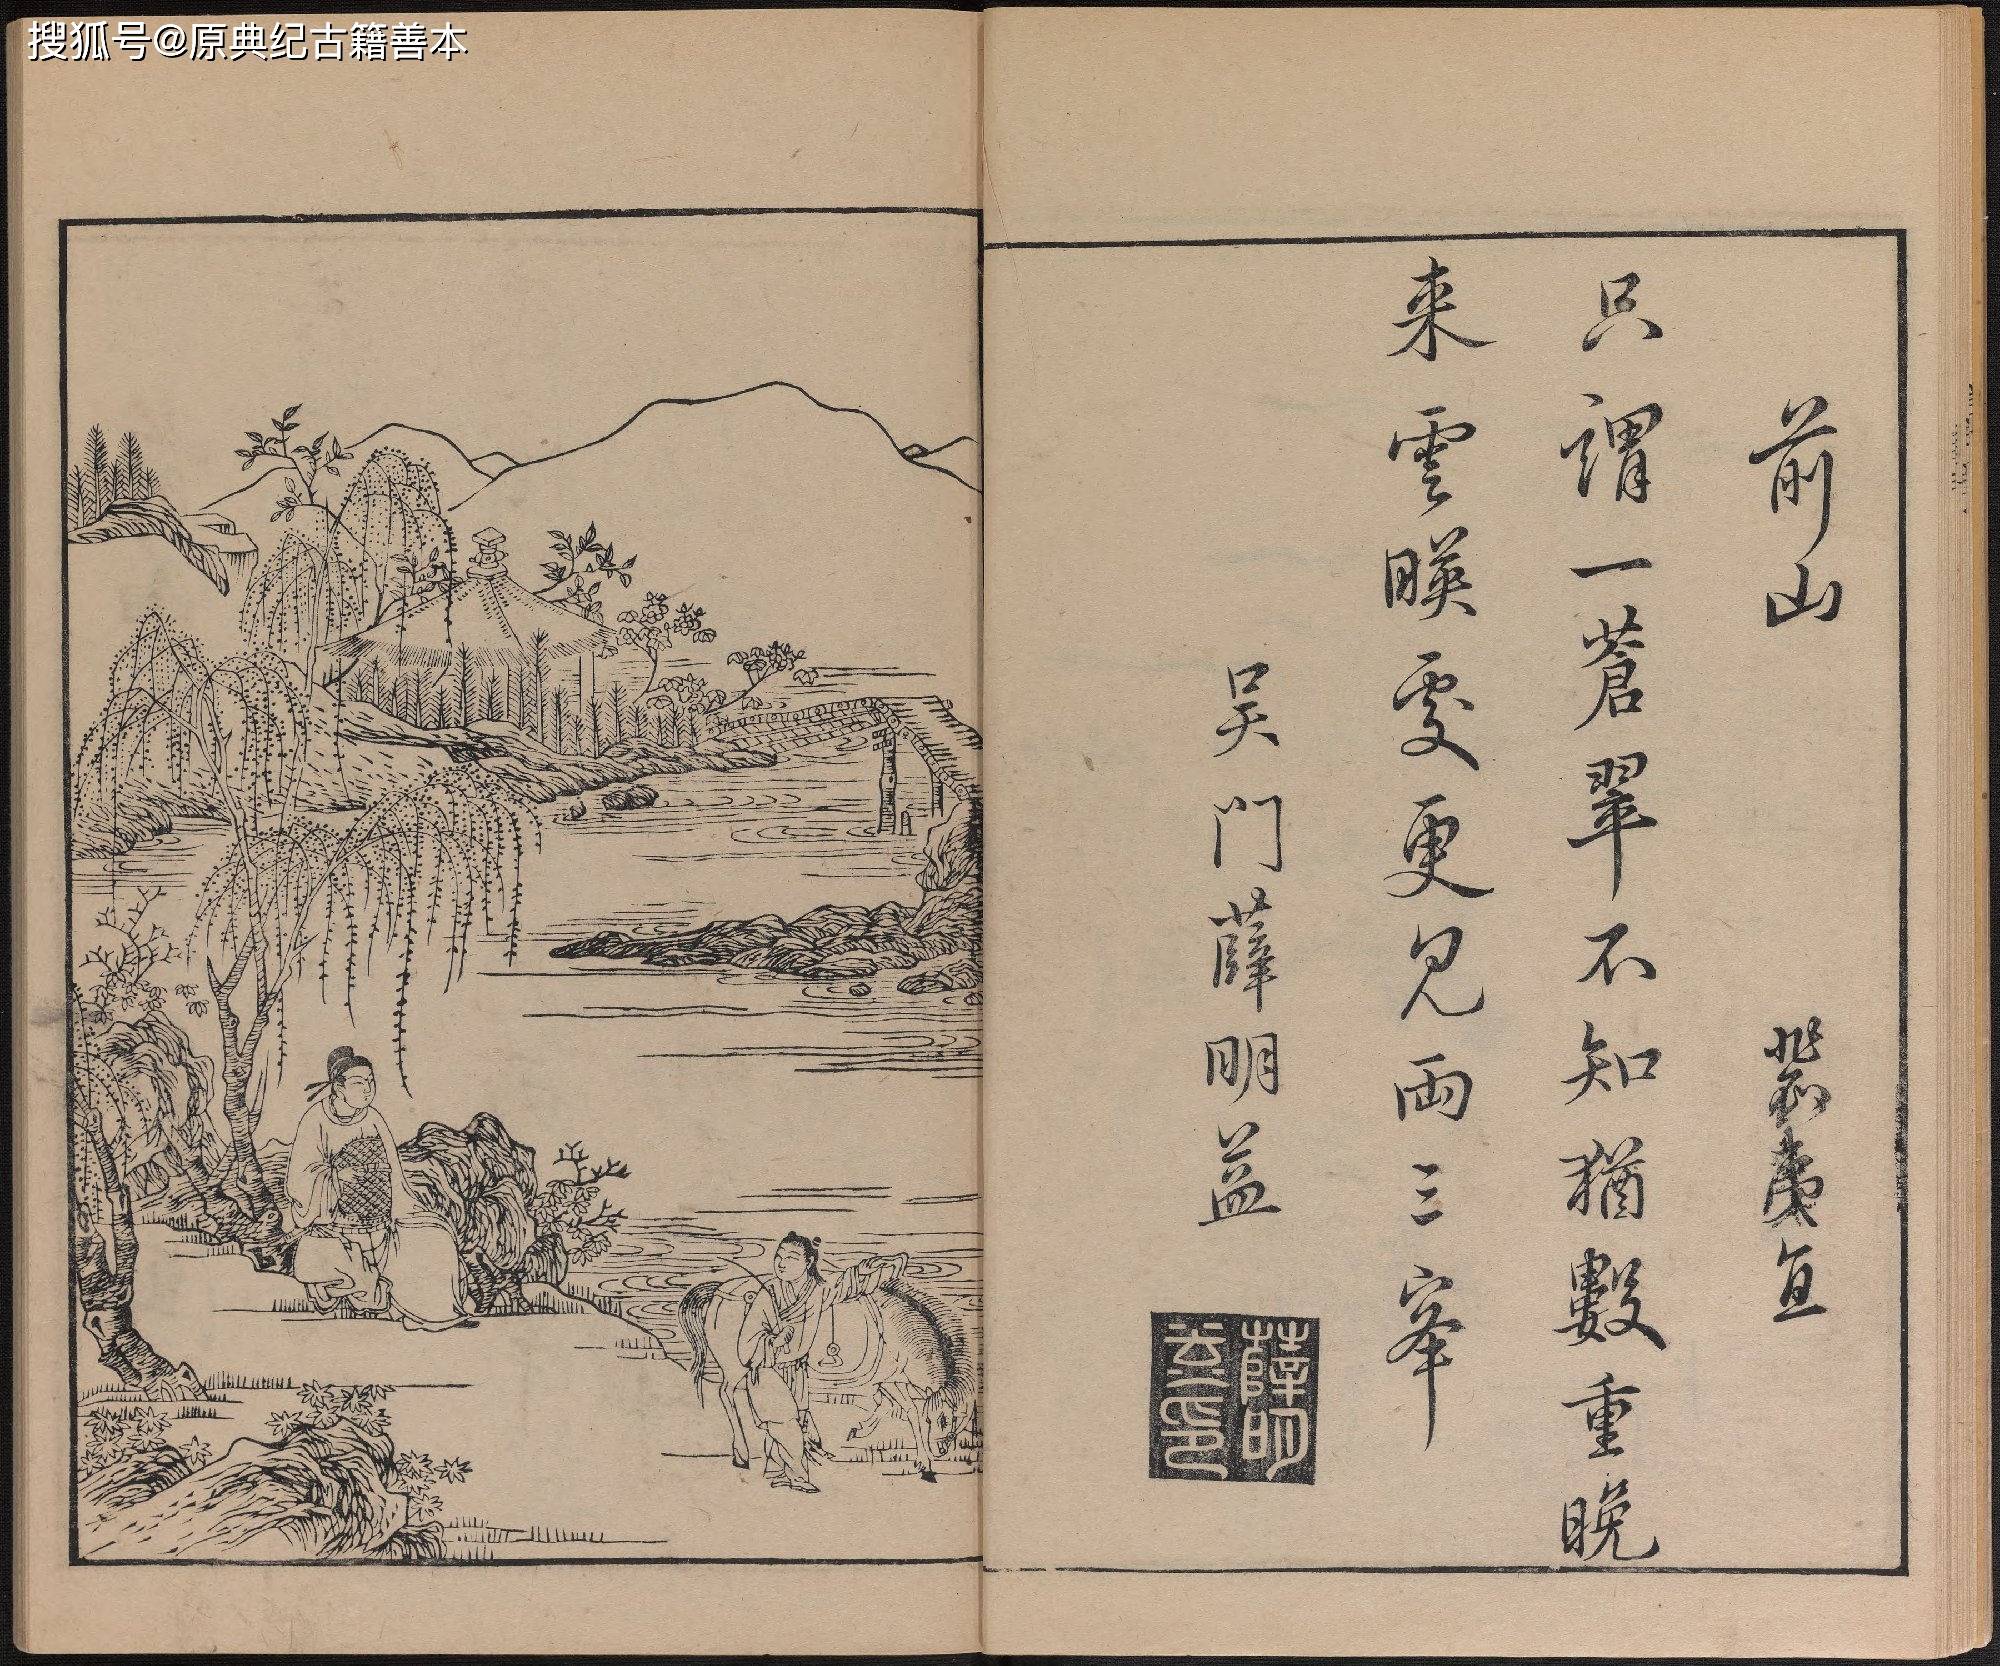 搜狐号@原典纪古籍善本
前山　裴夷直
只謂一蒼翠不知猶數重晚
来雲暎處更見兩三峯
吳門薛明益
薛明益印